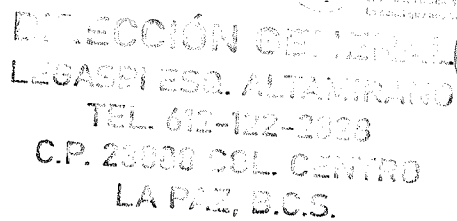 DIRECCIÓN GENERAL
LEGASPI ESQ. ALTAMIRANO
TEL. 612-122-
C.P. 23000 COL. CENTRO
LA PAZ, B.C.S.